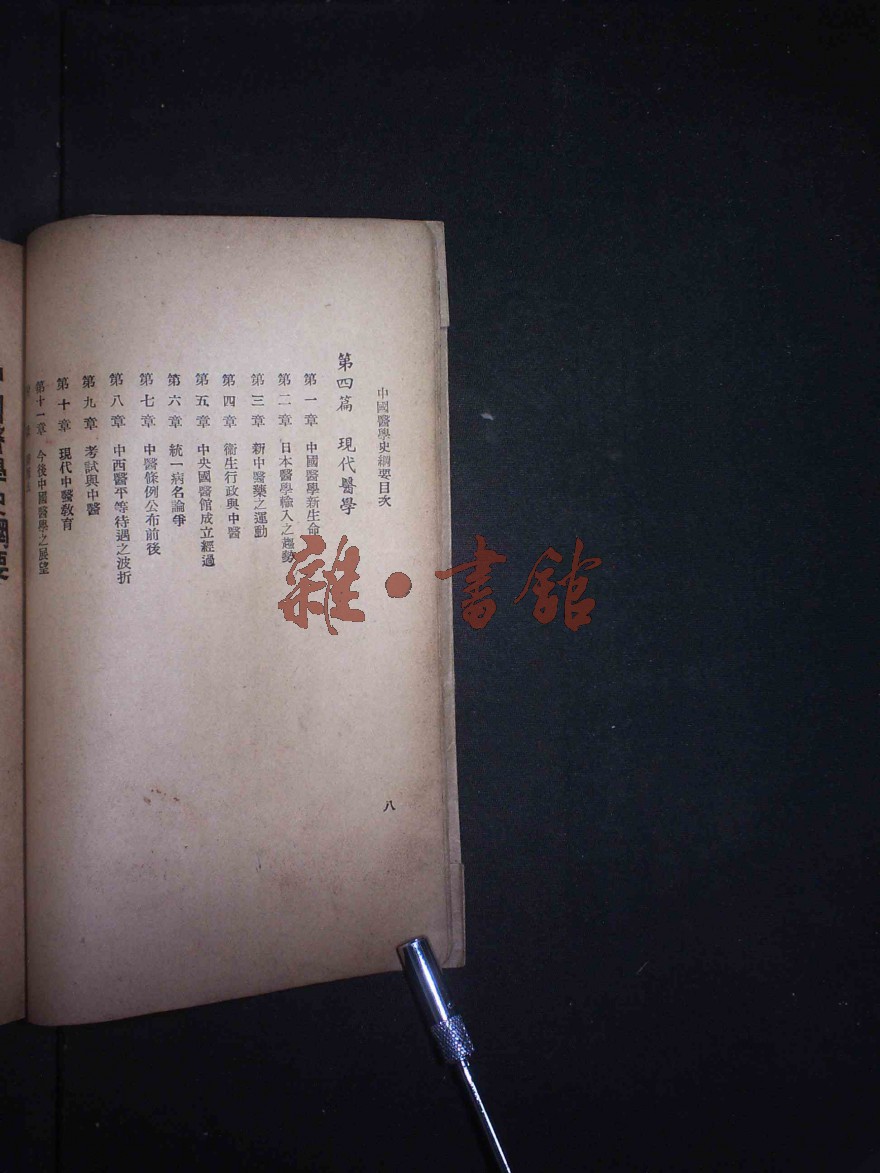 中國醫學史綱要目次
第四篇 現代醫學
第一章 中國醫學新生命
第二章 日本醫學輸入之趨勢
第三章 新中醫藥之運動
第四章 衞生行政與中醫
第五章 中央國醫館成立經過
第六章 統一病名論爭
第七章 中醫條例公布前後
第八章 中西醫平等待遇之波折
第九章 考試與中醫
第十章 現代中醫教育
第十一章 今後中國醫學之展望
八
中國醫學史綱要
雜·書館